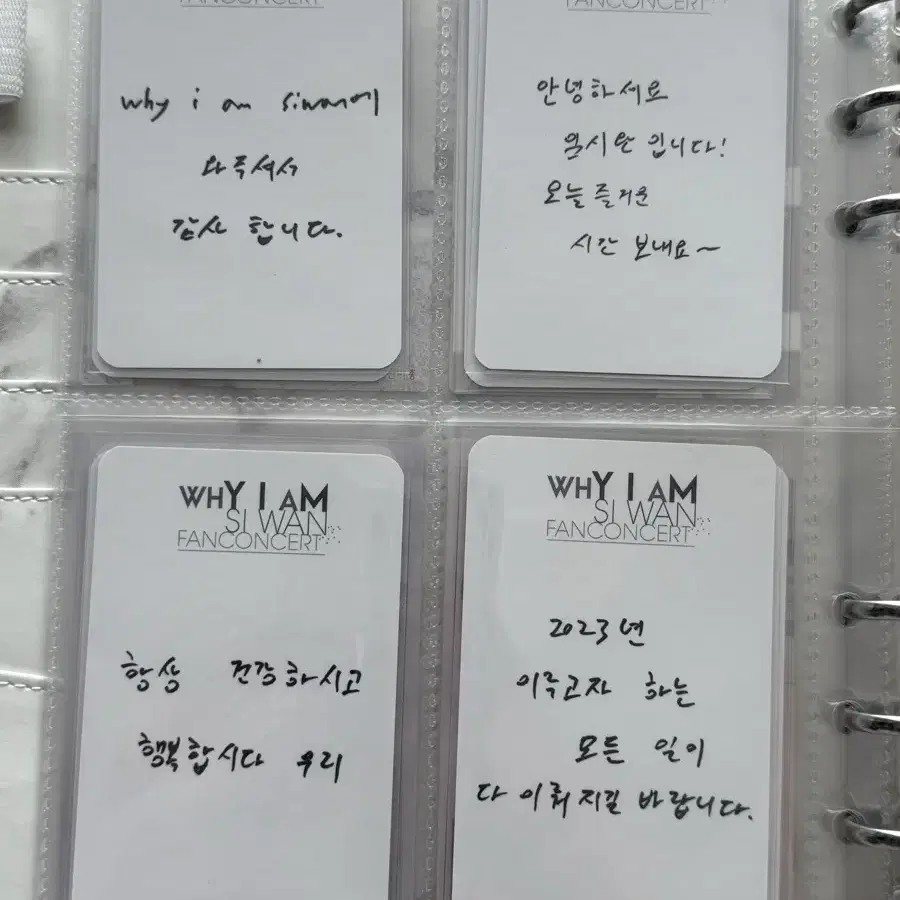 FANCONCERT
why i am siwan에
와주셔서
감사 합니다.
FANCONCERT
안녕하세요
임시완 입니다!
오늘 즐거운
시간 보내요~
WHY I AM
SI WAN
FANCONCERT
항상 건강하시고
행복합시다 우리
WHY I AM
SI WAN
FANCONCERT
2023년
이루고자 하는
모든 일이
다 이뤄지길 바랍니다.